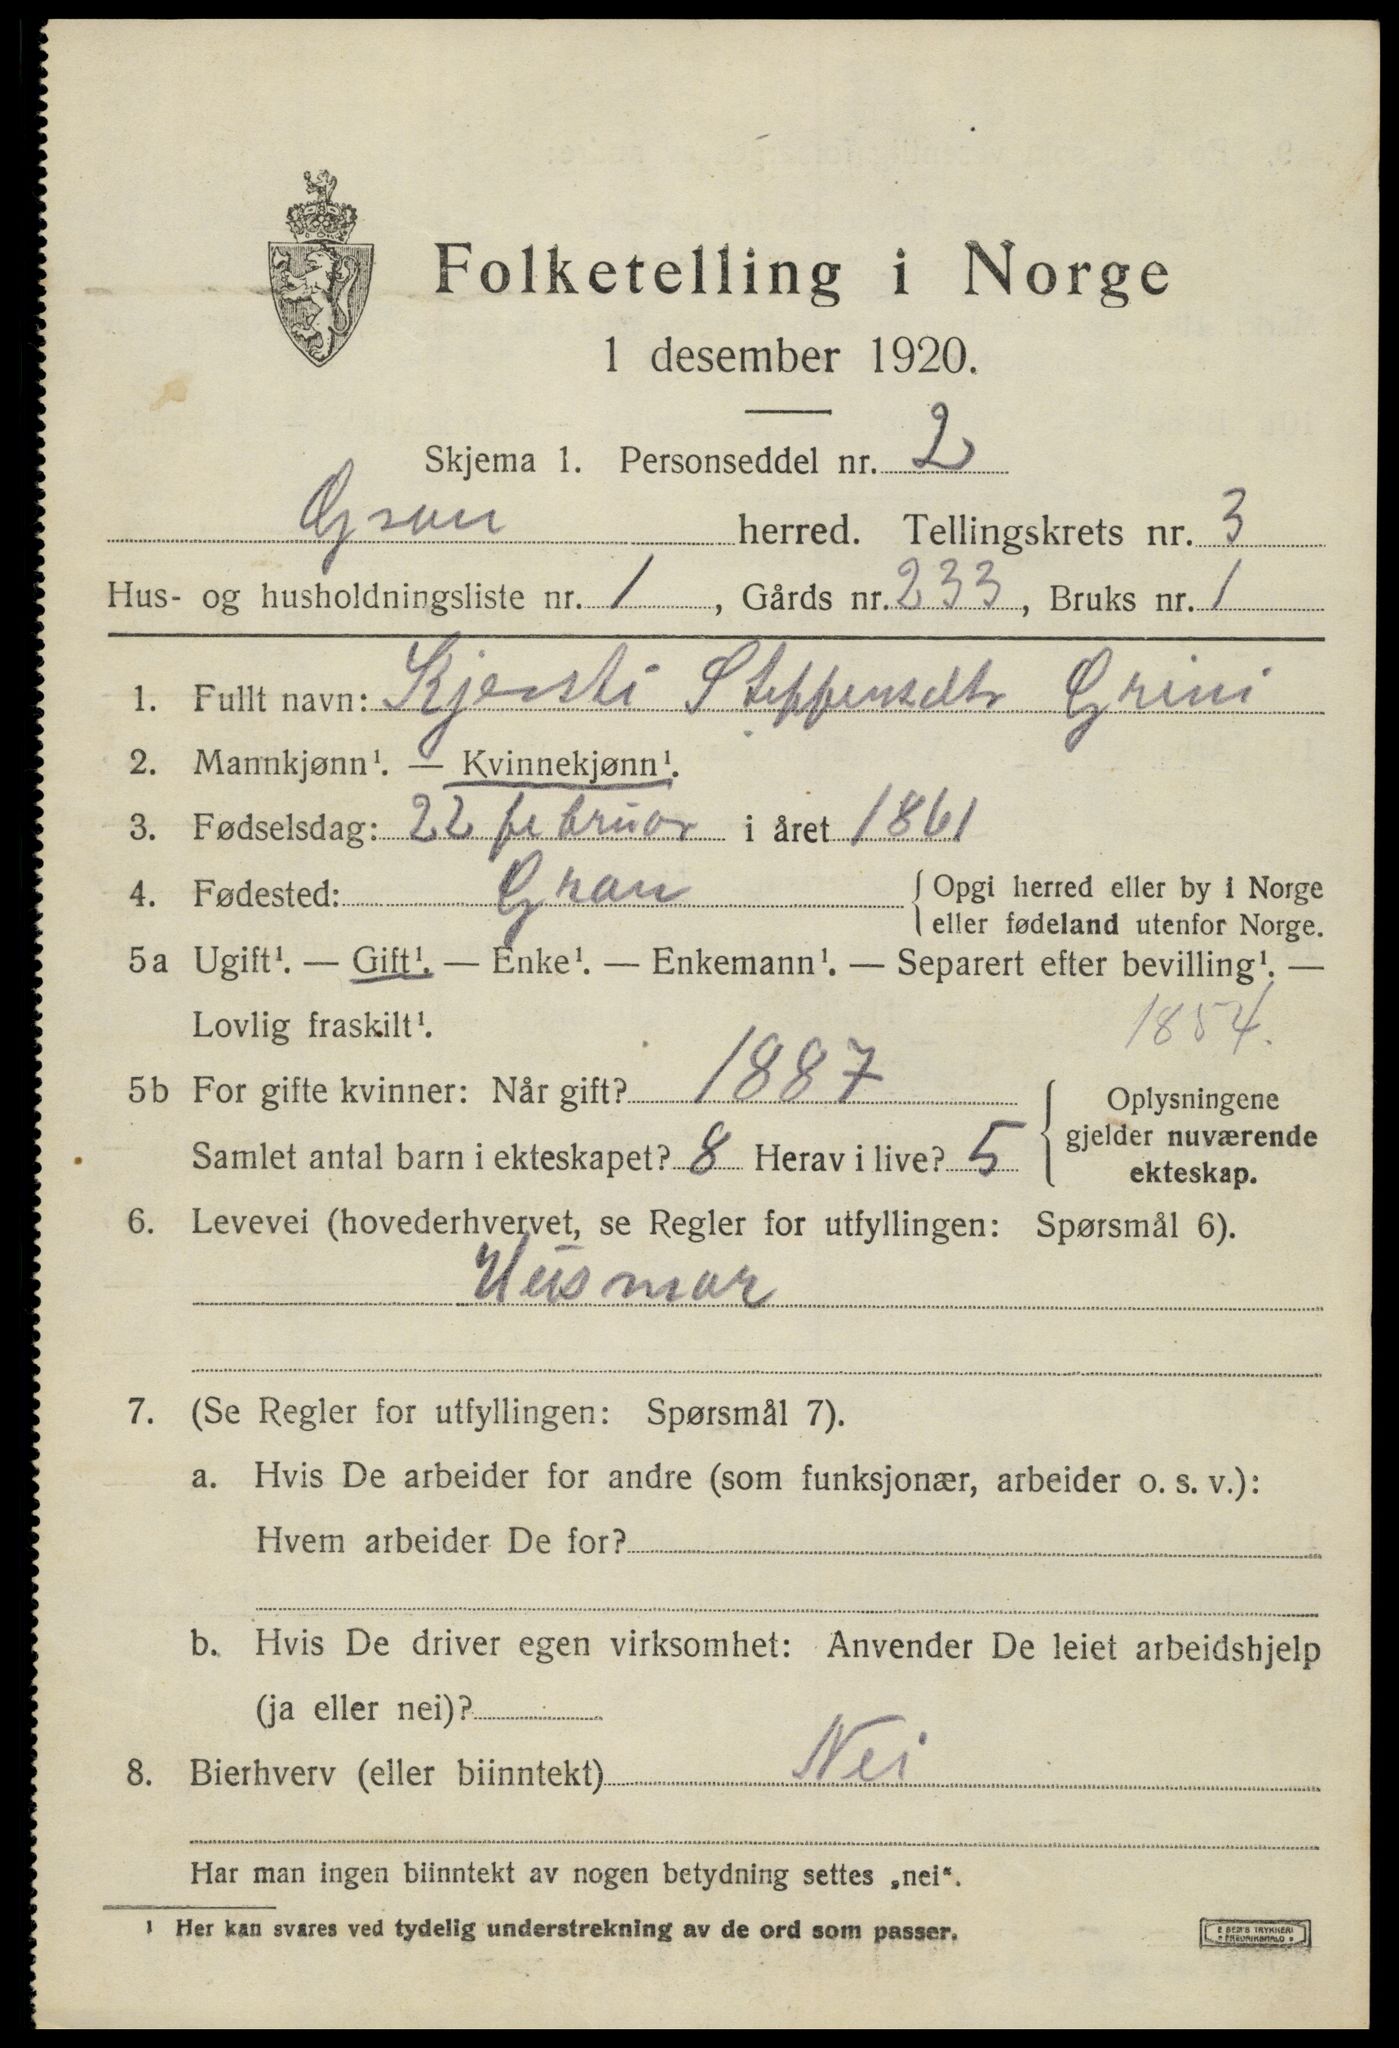 Folketelling i Norge
1 desember 1920.
Skjema 1. Personseddel nr. 2
Gran herred. Tellingskrets nr. 3
Hus- og husholdningsliste nr. 1, Gårds nr. 233, Bruks nr. 1
1. Fullt navn: Kjersti Steffensdtr Grini
2. Mannkjønn¹. — Kvinnekjønn¹.
3. Fødselsdag: 22 februar i året 1861
4. Fødested: Gran { Opgi herred eller by i Norge
eller fødeland utenfor Norge.
5a Ugift¹. — Gift¹. — Enke¹. — Enkemann¹. — Separert efter bevilling¹. —
Lovlig fraskilt¹. 1854.
5b For gifte kvinner: Når gift? 1887
Samlet antal barn i ekteskapet? 8 Herav i live? 5
{ Oplysningene
gjelder nuværende
ekteskap.
6. Levevei (hovederhvervet, se Regler for utfyllingen: Spørsmål 6).
Husmor
7. (Se Regler for utfyllingen: Spørsmål 7).
a. Hvis De arbeider for andre (som funksjonær, arbeider o. s. v.):
Hvem arbeider De for?
b. Hvis De driver egen virksomhet: Anvender De leiet arbeidshjelp
(ja eller nei)?
8. Bierhverv (eller biinntekt) Nei
Har man ingen biinntekt av nogen betydning settes „nei“.
¹ Her kan svares ved tydelig understrekning av de ord som passer.
E SEM'S TRYKKERI
FREDRIKSHALD